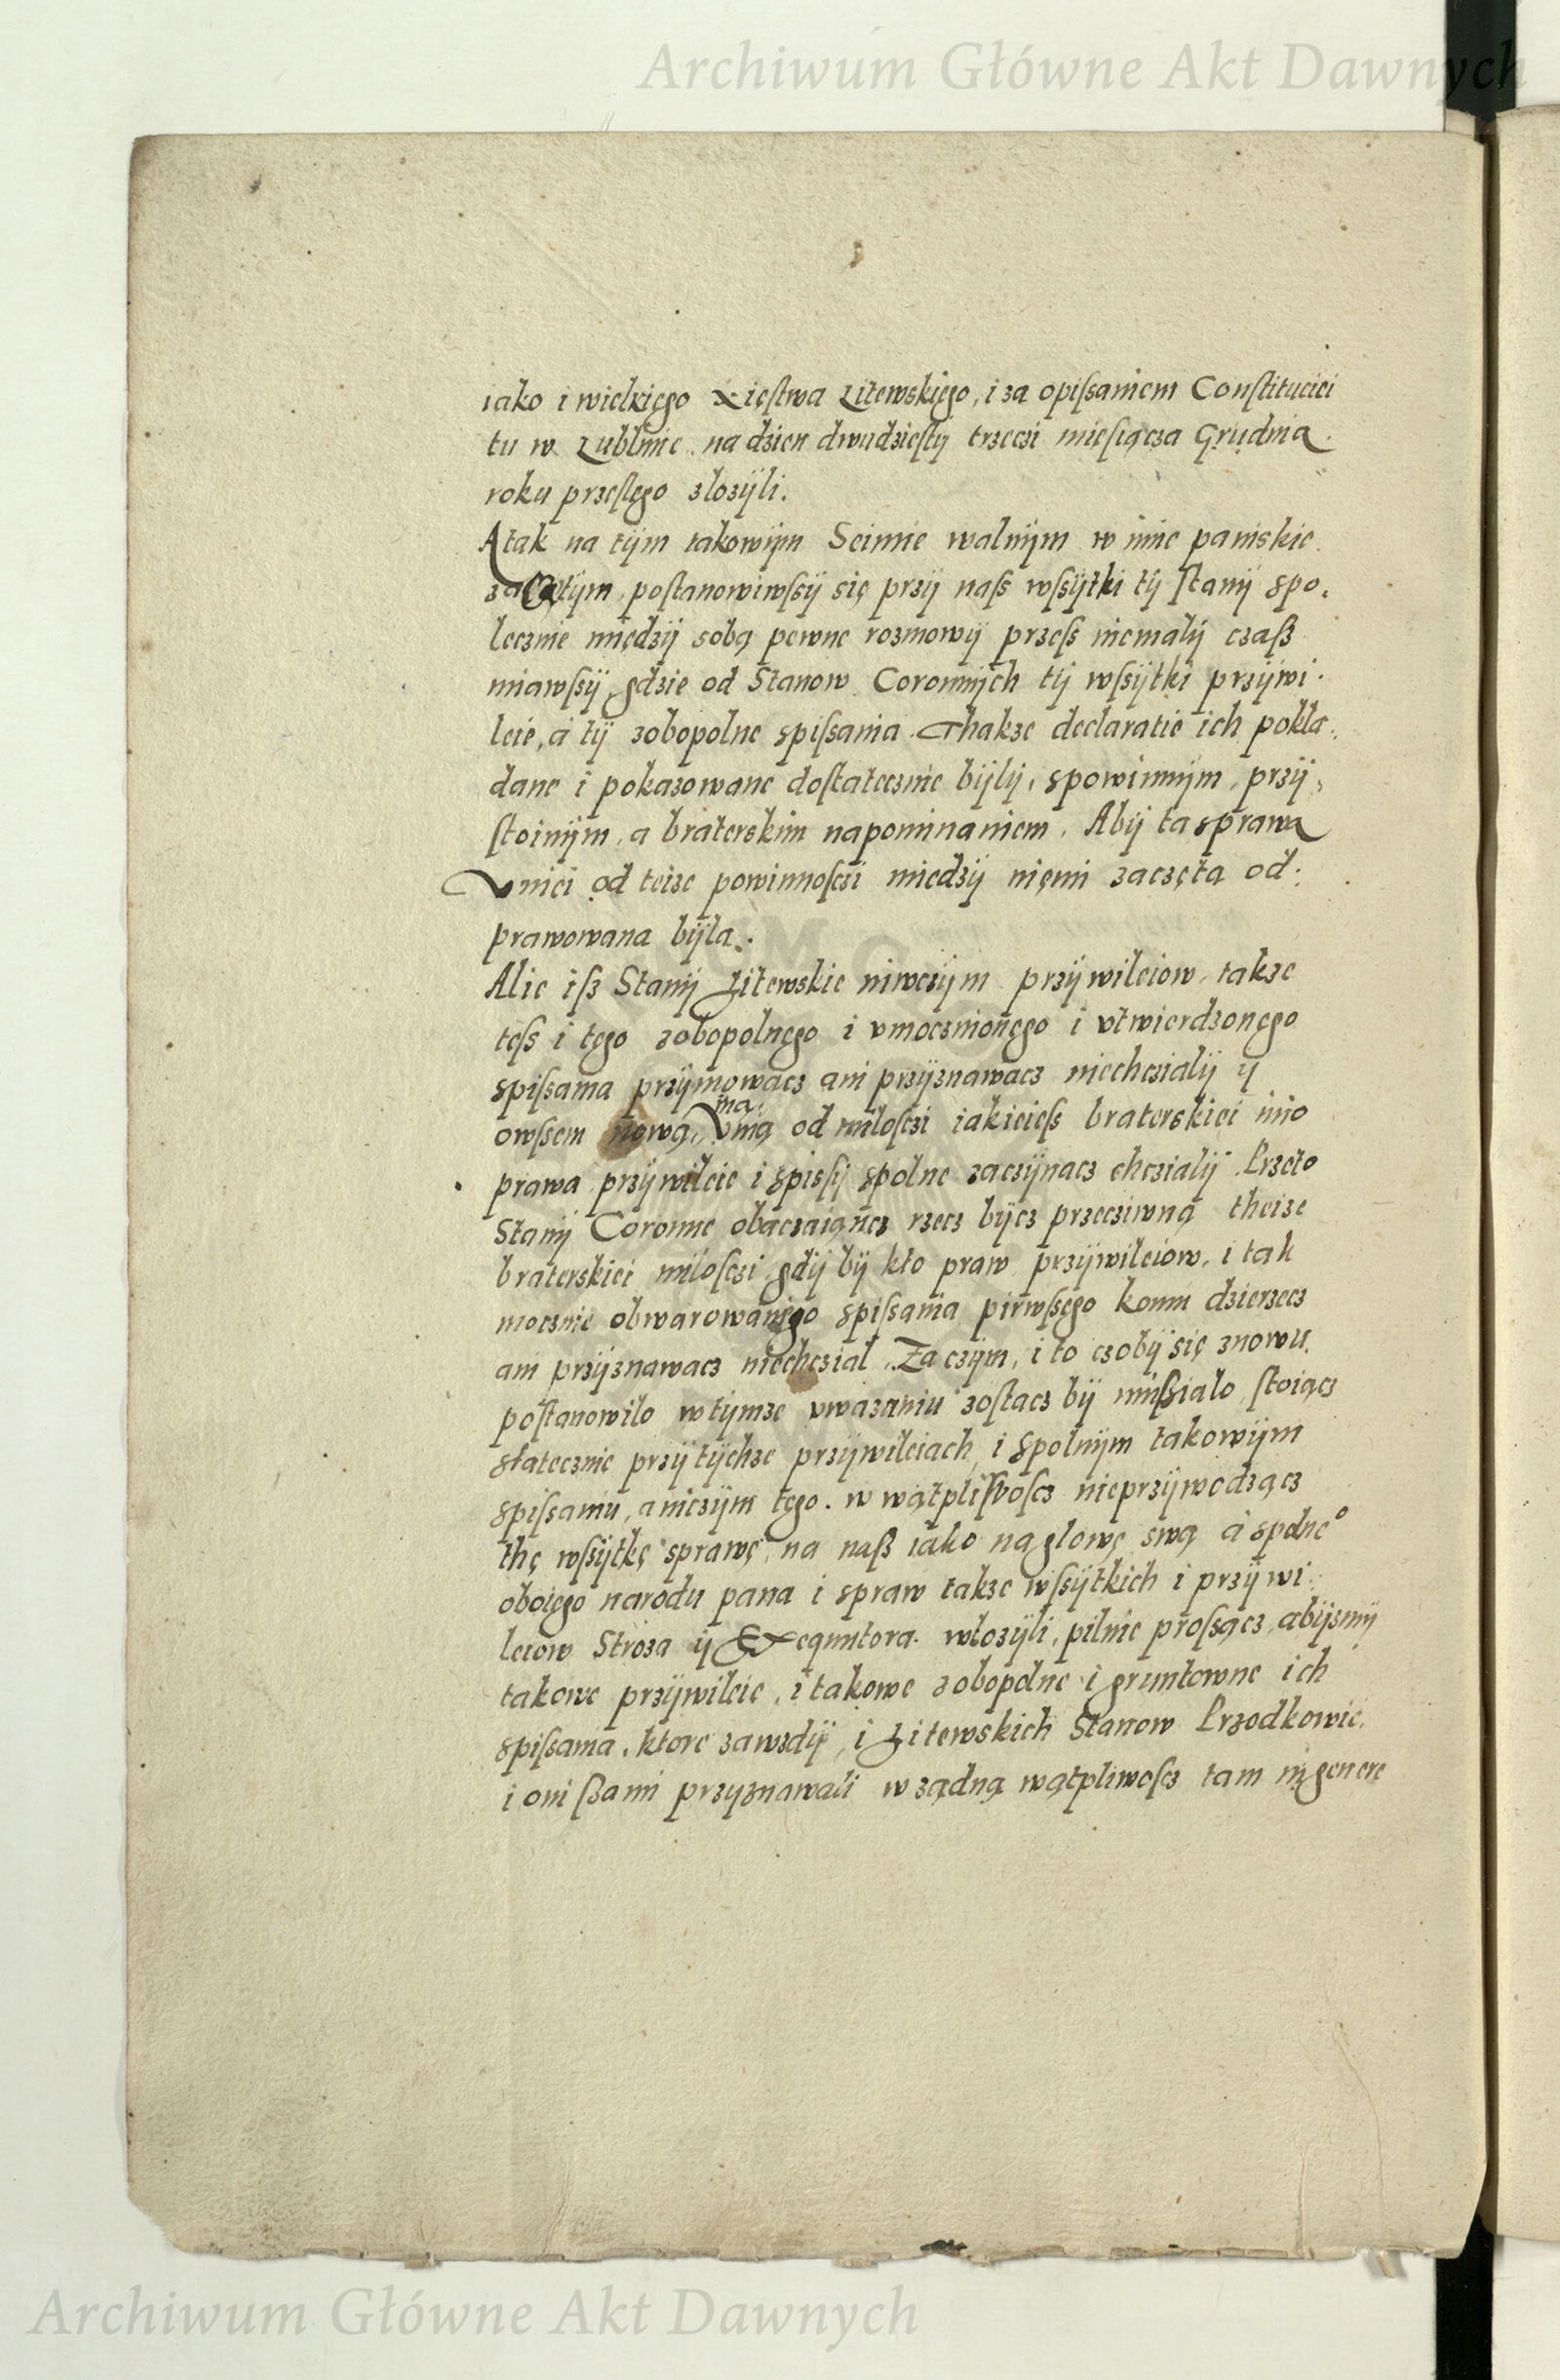 Archiwum Główne Akt Dawnych
iako i wielkięgo Xięſtwa Litewskięgo, i za opiſsaniem Conſtituciei
tu w Lublinie na dzien dwudzieſtÿ trzeczi mieſiącza Grudnia.
roku przeſlęgo zlozÿli.
A tak na tÿm takowÿm Seimie walnÿm w imie paniskie
zaczętÿm, poſtanowiwſsÿ się przÿ naſs wſsÿtki tÿ ſtanÿ spo,
lecznie międzÿ sobą pewne rozmowÿ przeſs niemalÿ czaſz
miawſsÿ, gdzie od Stanow Coronnÿch tÿ wſsÿtki przÿwi.
leie, a tÿ zobopolne spiſsania Thakze declaratie ich pokla,
dane i pokazowane doſtatecznie bÿlÿ, spowinnÿm, przÿ,
ſtoinÿm, a braterskim napominaniem, Abÿ ta sprawa
Vniei od teize powinnoſczi miedzÿ nięmi zaczęta od:
prawowana bÿla.
Alie iſz Stanÿ Litewskie niwczÿm przÿwileiow, takze
teſs i tęgo zobopolnęgo i vmocznionęgo i vtwierdzonęgo
spiſsania przÿmowacz ani przÿznawacz niechczialÿ ÿ
ina
owſsem nową, Vnią od miloſczi iakieieſs braterskiei inio
prawa przÿwileie i spiſsÿ spolne zaczÿnacz chczialÿ Przeto
Stanÿ Coronne obaczaiąncz rzecz bÿcz przecziwną theize
braterskiei miloſczi gdÿ bÿ kto praw przÿwileiow, i tak
mocznie obwarowanięgo spiſsania pirwſsęgo komu dzierzecz
ani przÿznawacz niechczial, Za czÿm, i to czobÿ się znowu
poſtanowilo w tÿmze vwazaniu zoſtacz bÿ muſzialo, ſtoiącz
statecznie przÿ tÿchze przÿwileiach, i spolnÿm takowÿm
spiſsaniu, a niczÿm tęgo w wątpliwoſcz nieprzÿwodzącz
thę wſsÿtkę sprawę, na naſz iako na glowę swą a spolne°
oboięgo narodu pana i spraw takze wſsÿtkich i przÿwi:
leiow Stroza ÿ Exequutora wlozÿli, pilnie proſsącz, abÿsmÿ
takowe przÿwileie, i takowe zobopolne i gruntowne ich
spiſsania, ktore zawzdÿ, i Litewskich Stanow Przodkowie,
i oni ſzami przyznawali w ządną wątpliwoſcz tam in genere
Archiwum Główne Akt Dawnych